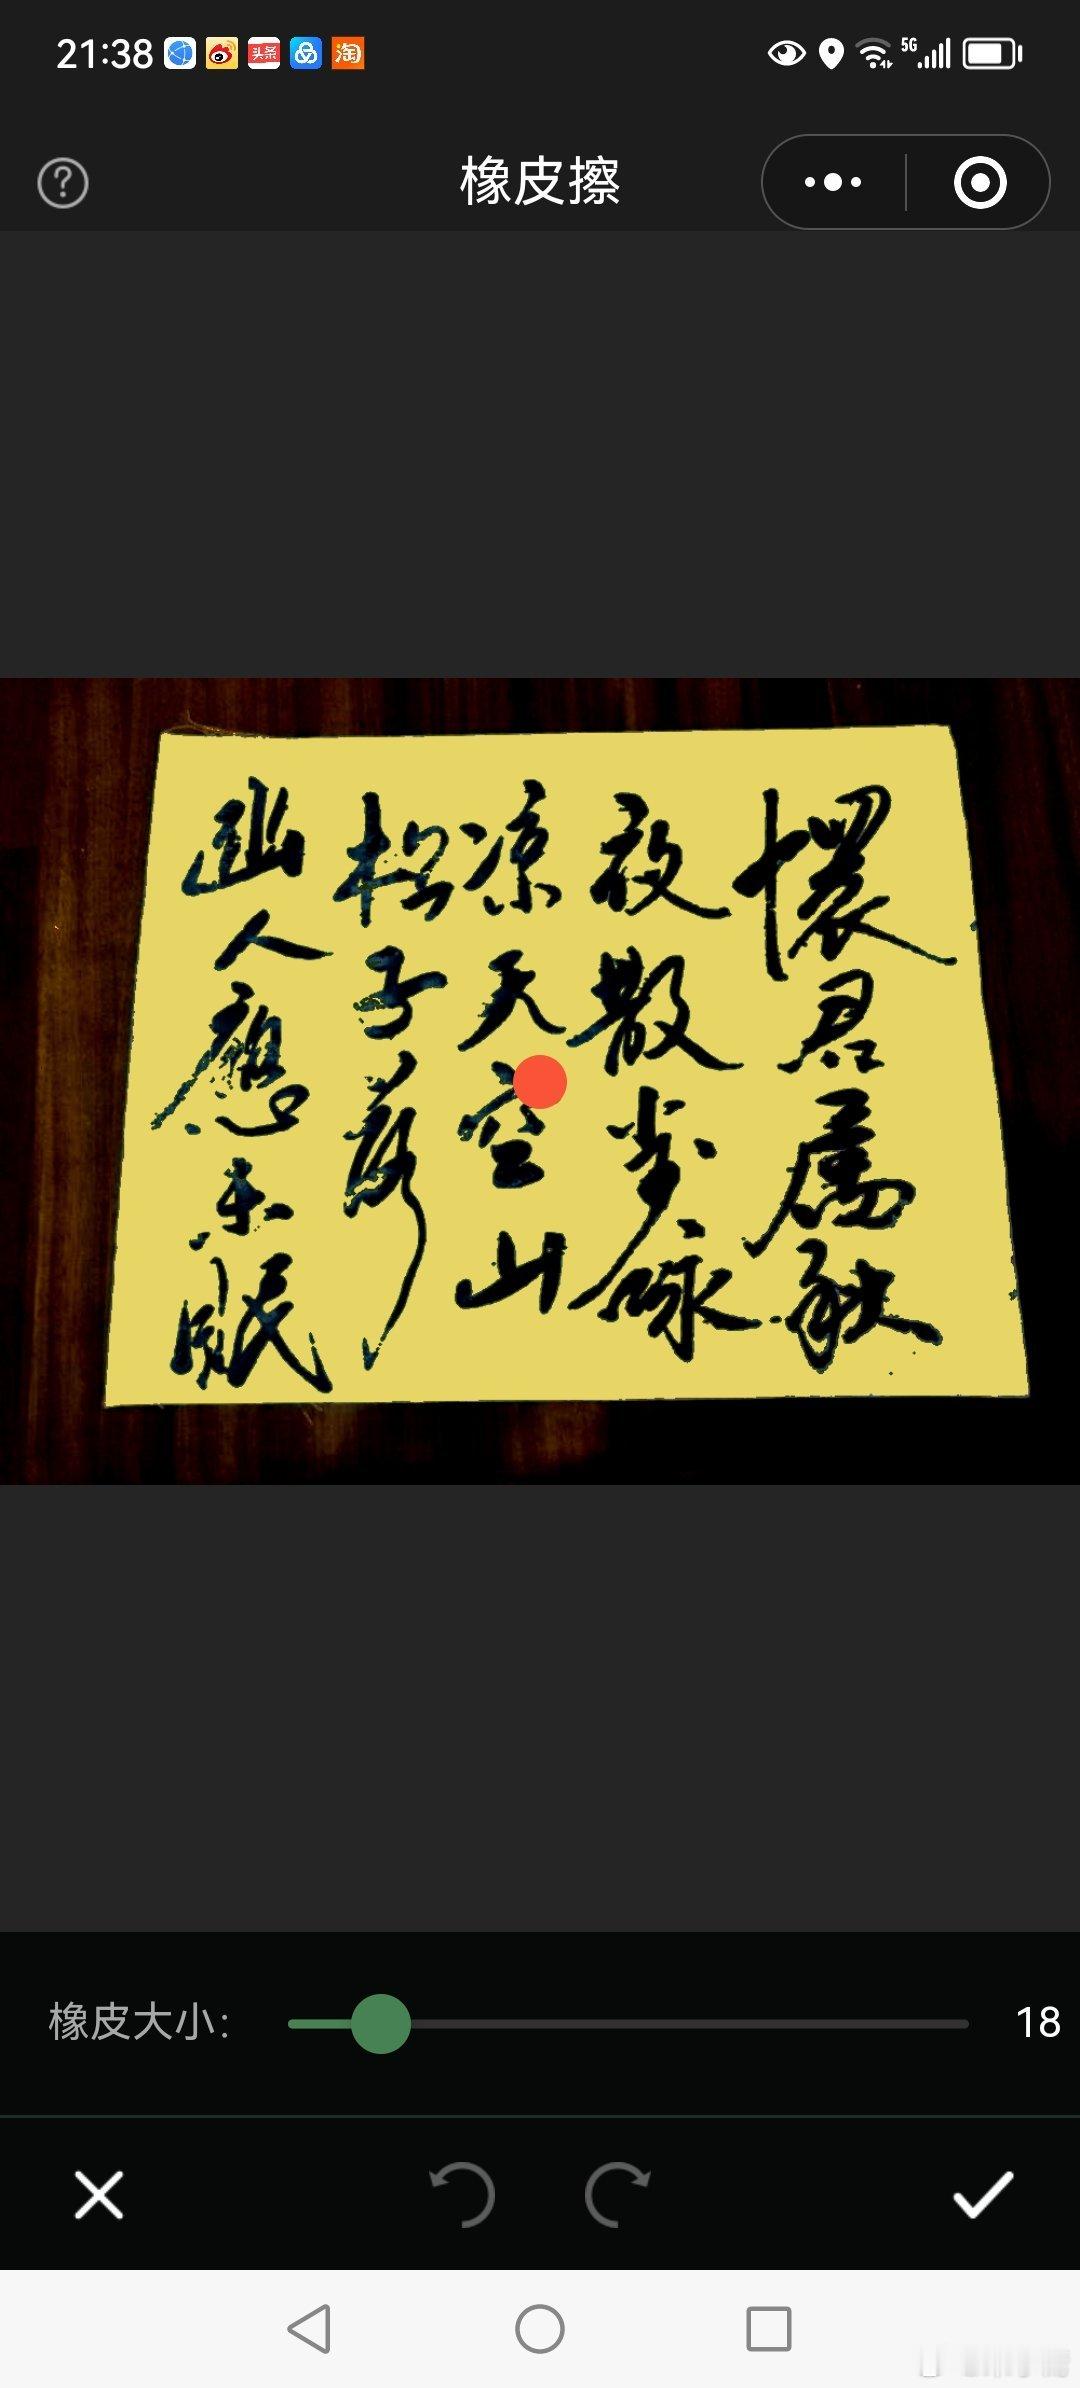 21:38
头条
淘
5G
橡皮擦
懷君屬秋
夜散步咏
凉天空山
松子落
幽人應未眠
橡皮大小：
18